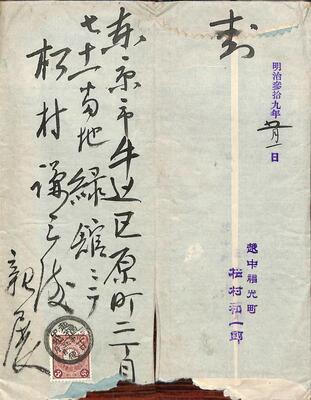 封
明治參拾九年
月
日
越中福光町
松村和一郎
東京市牛込区原町二丁目
七十一番地 緑舘ニテ
松村謙三殿
親展